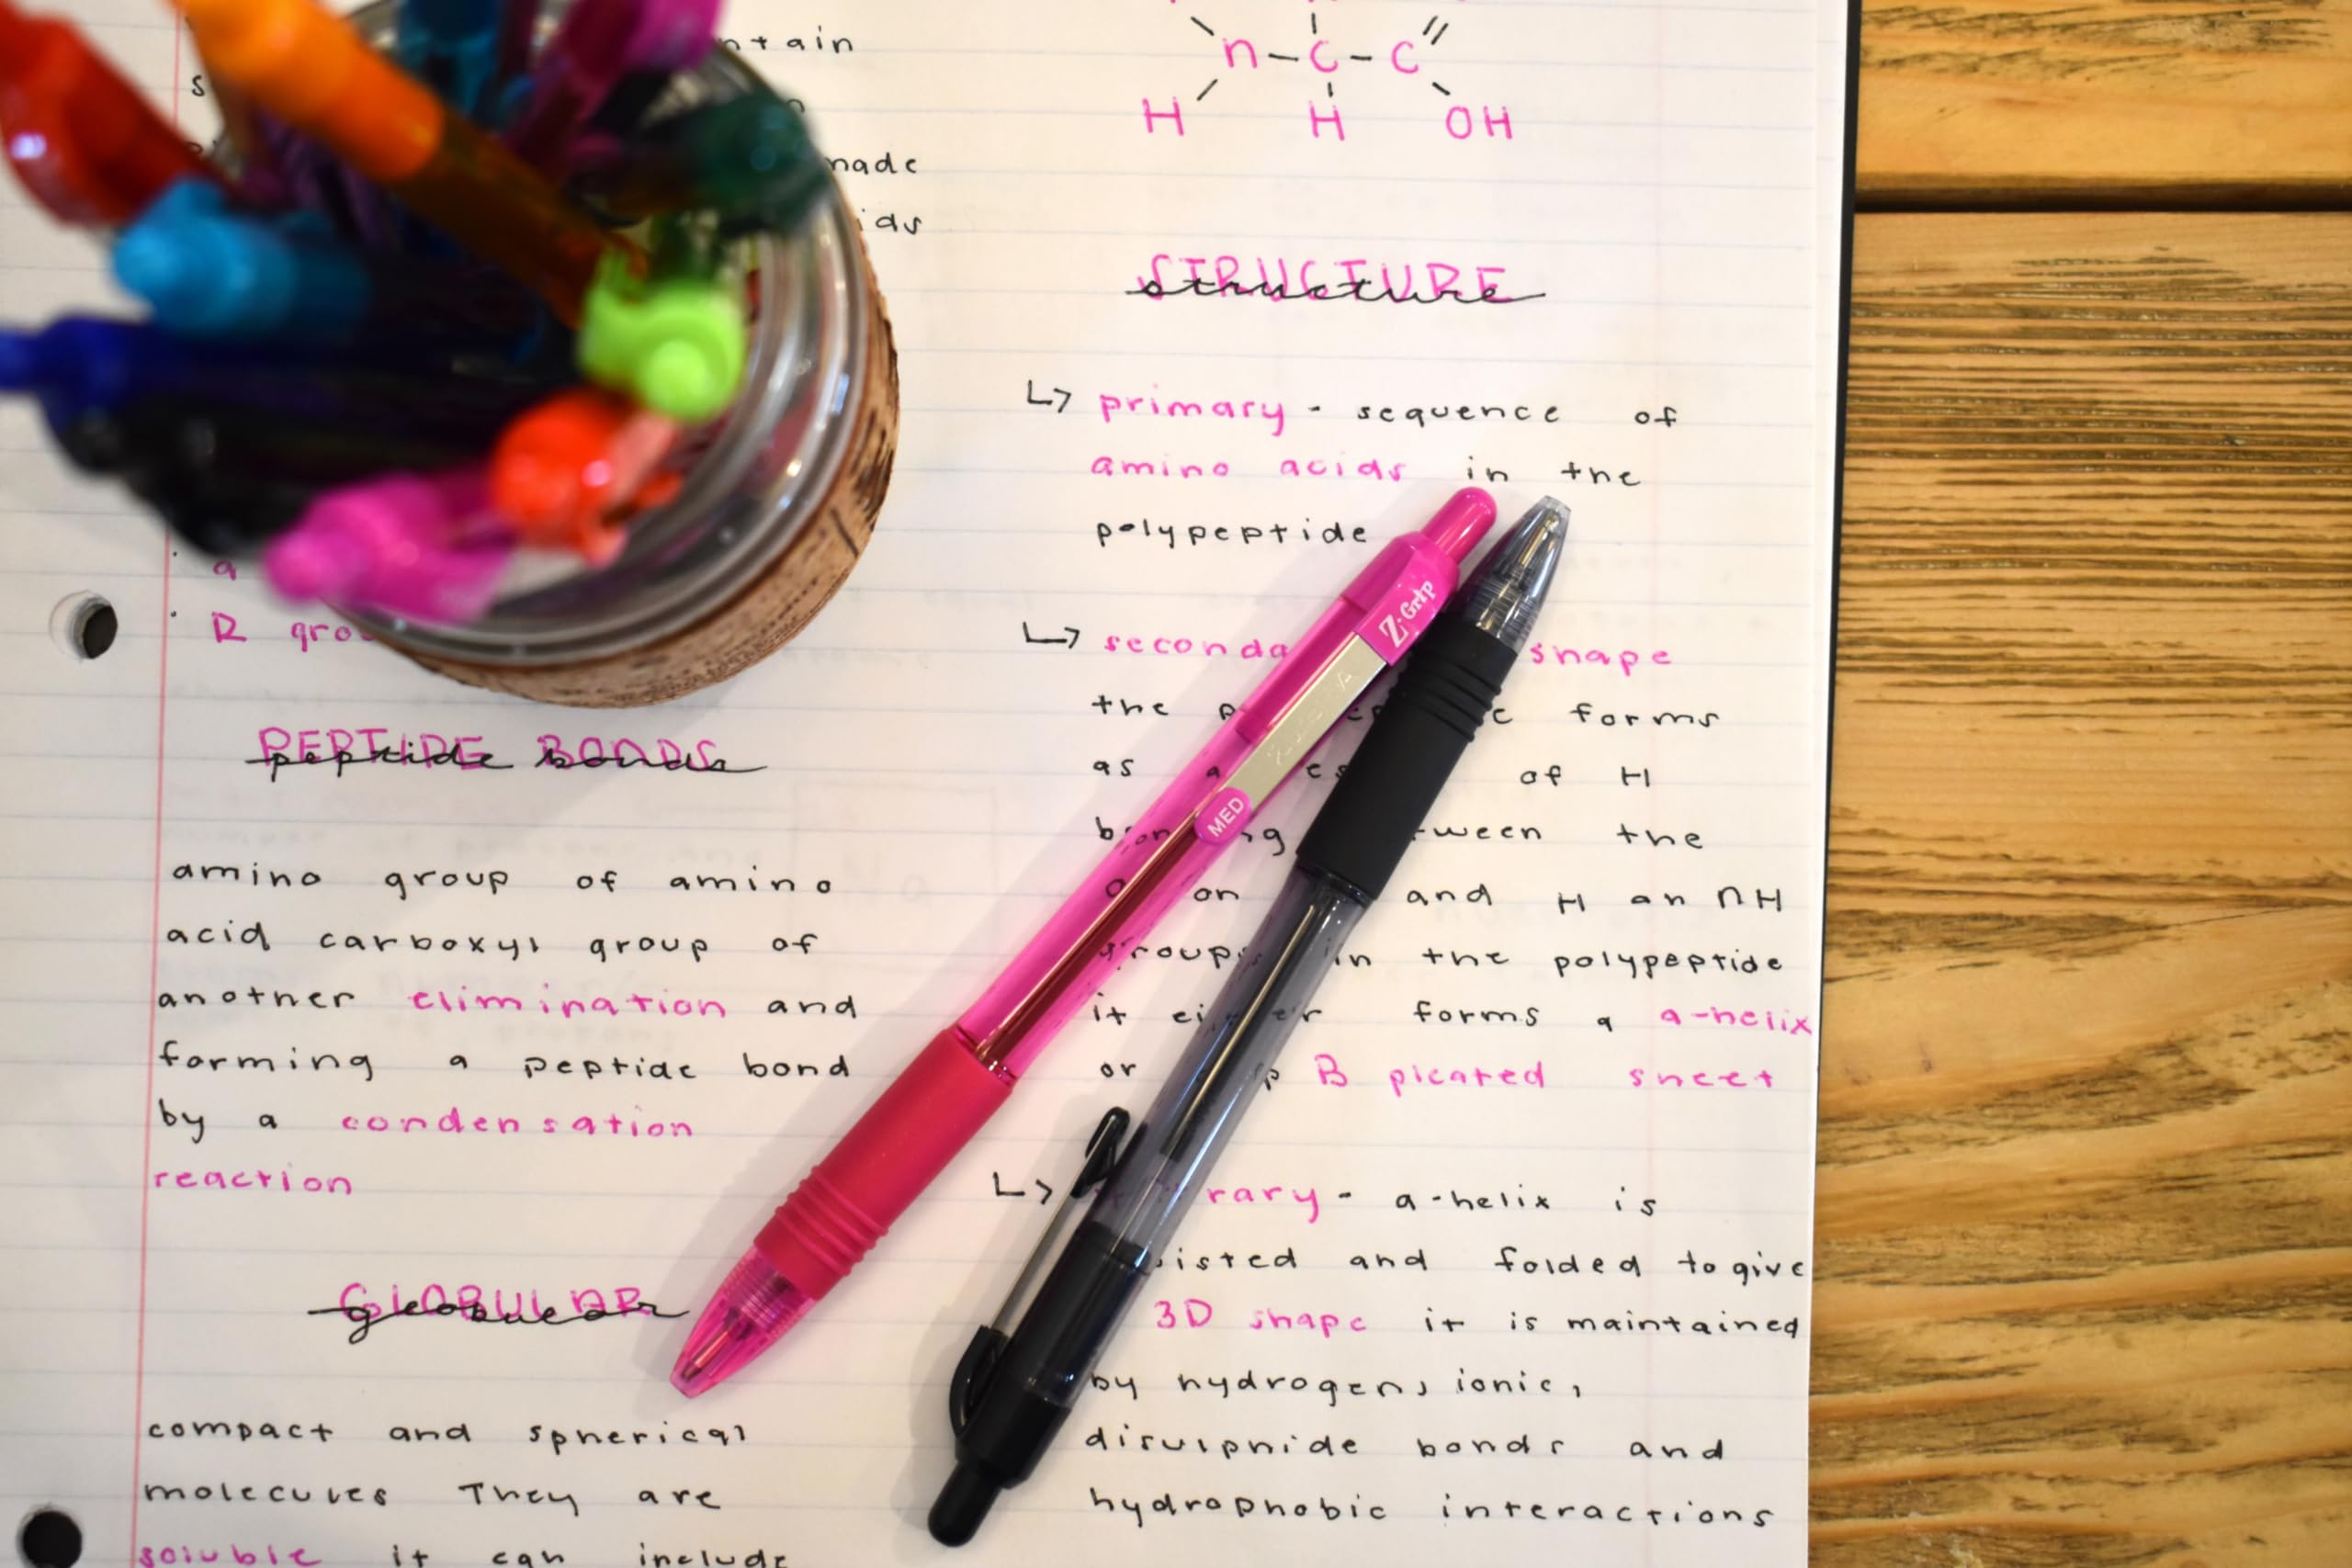 ntain
s
made
ids
a
R gro
PEPTIDE BONDS
peptide bonds
amino group of amino
acid carboxyl group of
another elimination and
forming a peptide bond
by a condensation
reaction
GLOBULAR
globular
compact and spherical
molecules They are
soluble it can include
n-C-C
H H OH
STRUCTURE
structure
↳ primary - sequence of
amino acids in the
polypeptide
↳ seconda shape
the forms
as a of H
bon ng tween the
on and H an nH
groups in the polypeptide
it either forms a a-helix
or B pleated sheet
↳ rary - a-helix is
isted and folded to give
3D shape it is maintained
by hydrogen, ionic,
disulphide bonds and
hydrophobic interactions
Z-Grip
ZEBRA
MED